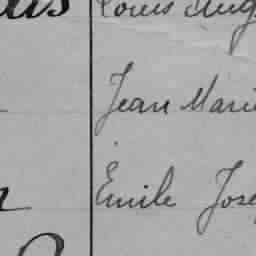 Louis Aug
Jean Marie
Emile Jose